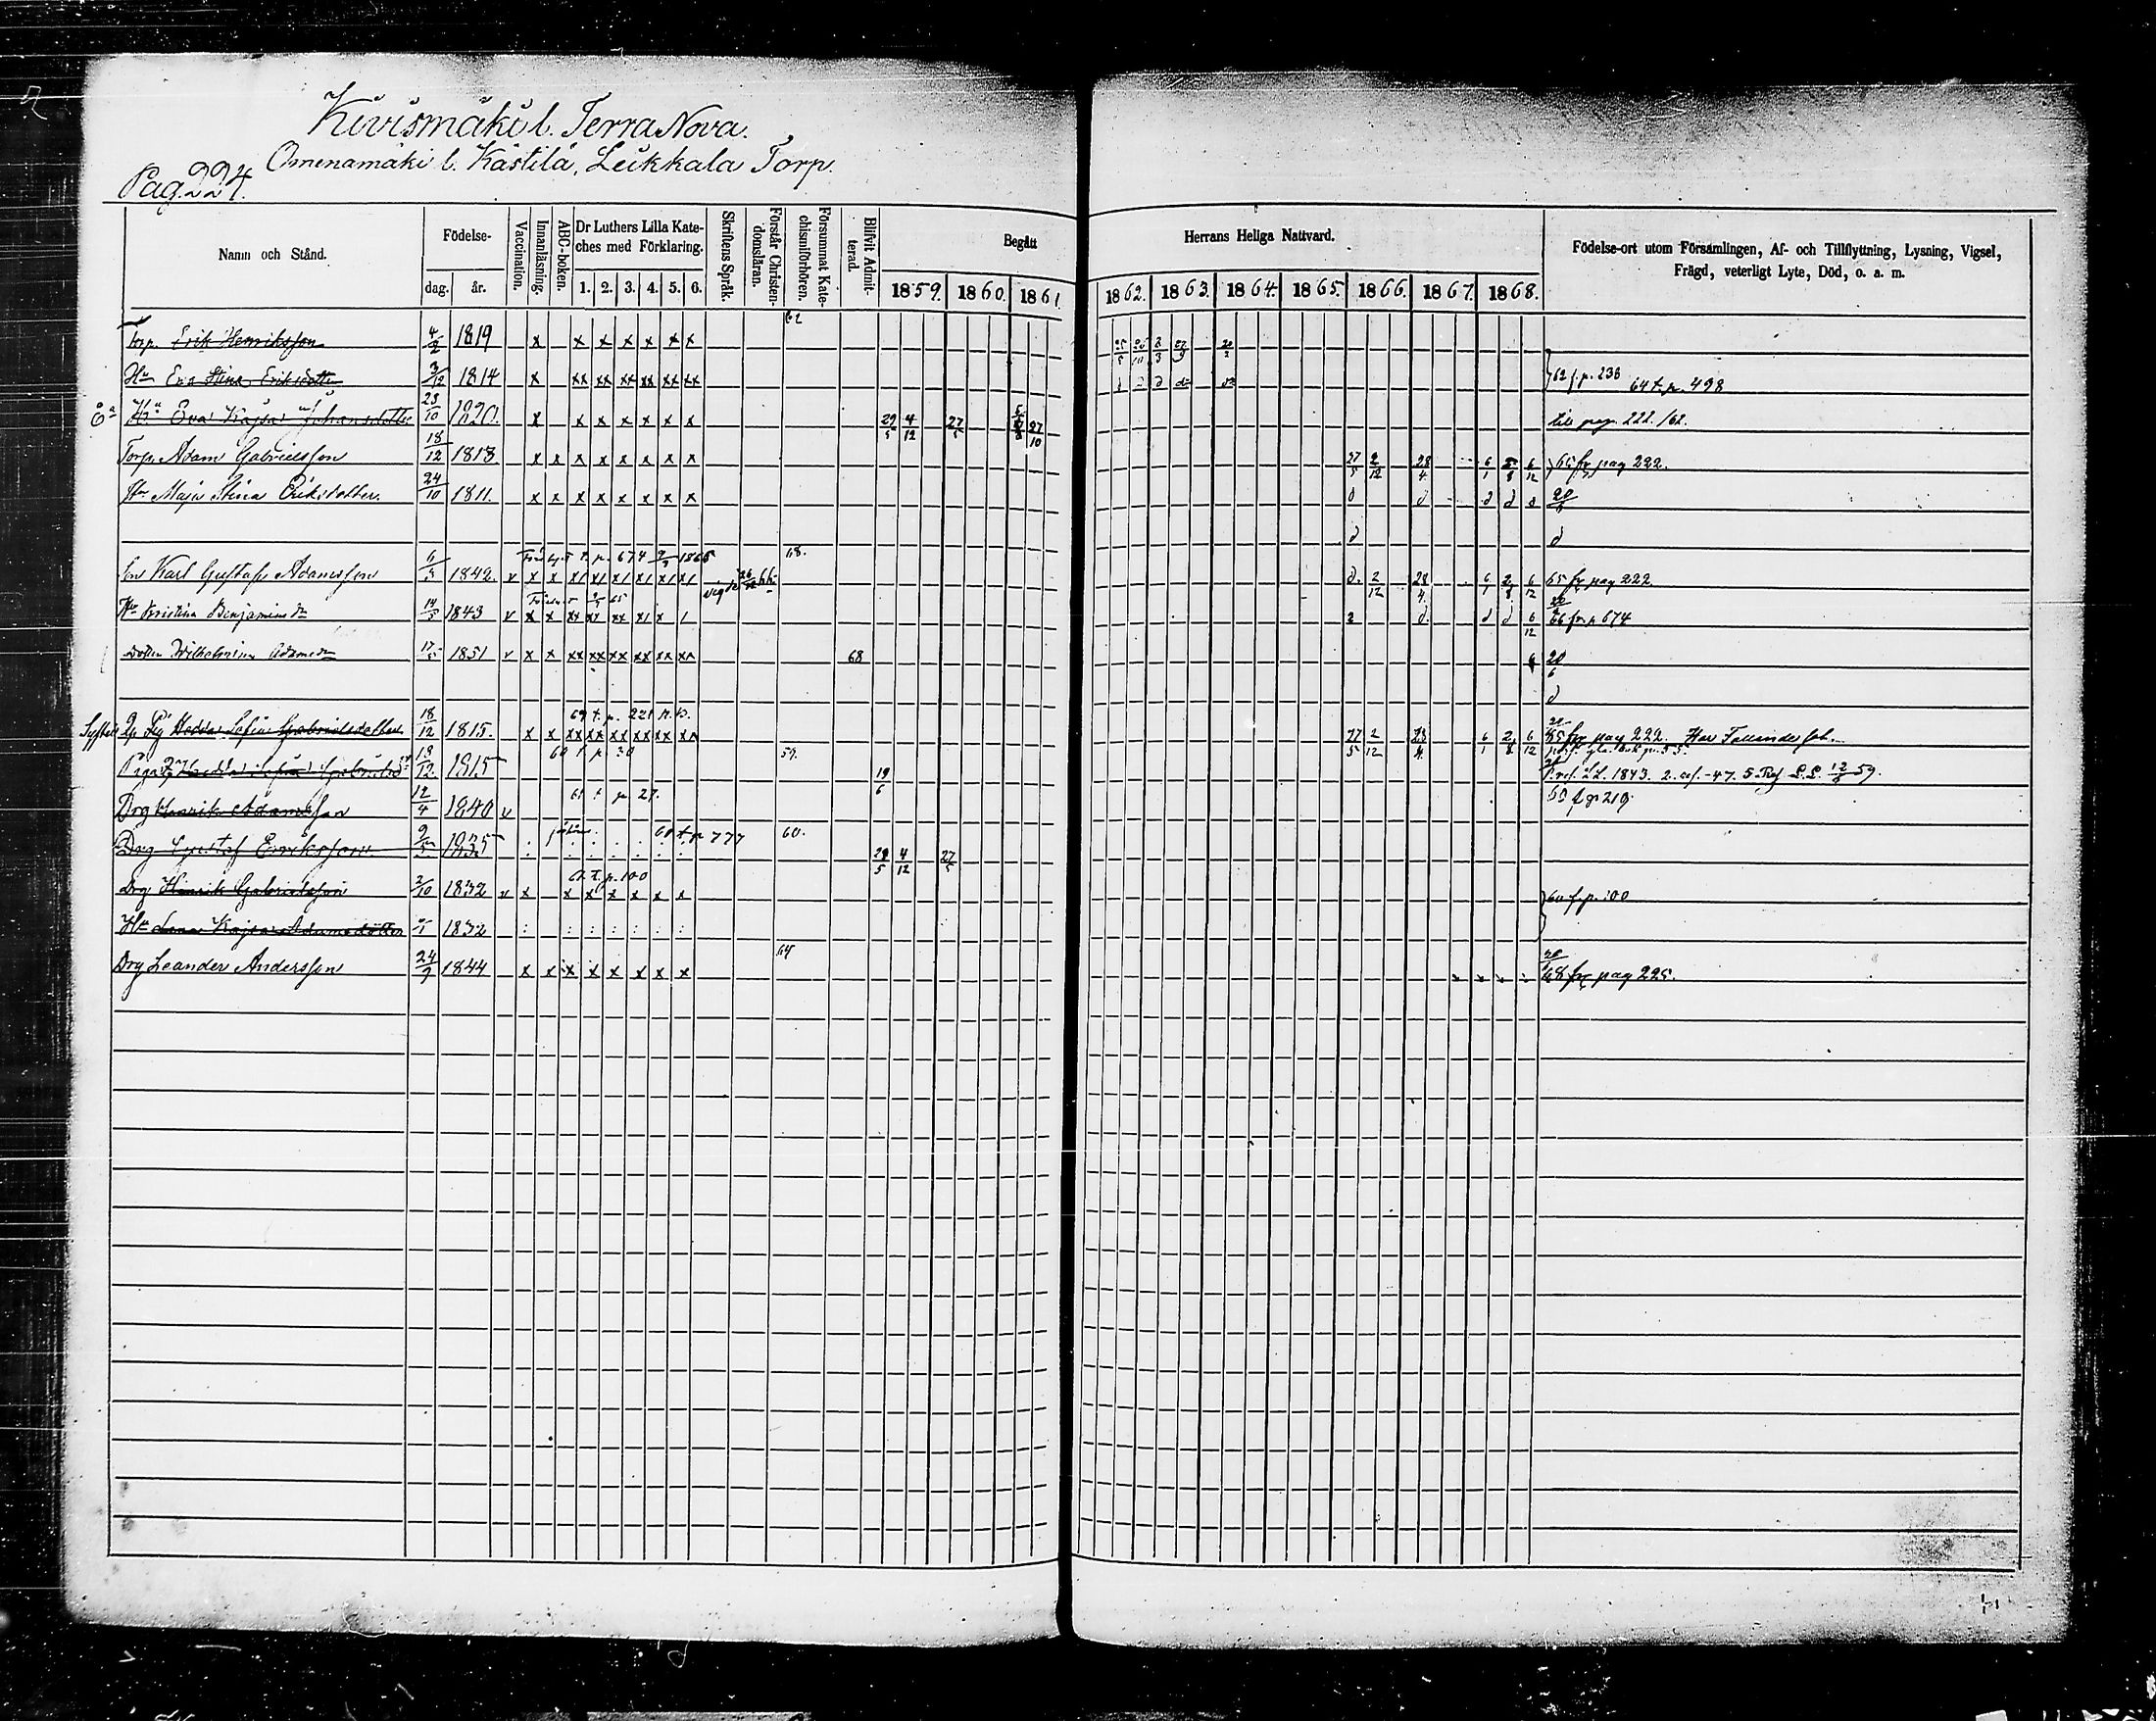 Kivismäki l. Terra Nova.
Omenamäki l. Kästilä, Leikkala Torp.
Pag. 224.
Namn och Stånd. Födelse- dag. år. Vaccination. Innanläsning. ABC-boken. Dr Luthers Lilla Kateches med Förklaring. 1. 2. 3. 4. 5. 6. Skriftens Språk. Förstår Christendomsläran. Försummat Katechismiförhören. Blifvit Admitterad. Begått Herrans Heliga Nattvard. 1859. 1860. 1861. 1862. 1863. 1864. 1865. 1866. 1867. 1868. Födelse-ort utom Församlingen, Af- och Tillflyttning, Lysning, Vigsel, Frägd, veterligt Lyte, Död, o. a. m.
62
Torp. Erik Henriksson 4/2 1819 x x x x x x x
Hu Eva Stina Eriksdotter 3/12 1814 x xx xx xx xx xx xx 62 f. p. 236 64 t. p. 498
Hu Eva Kajsa Johansdotter 23/10 1820. x x x x x x x 29/5 4/12 27/5 27/10 till pag. 222. /62.
Torp. Adam Gabrielsson 18/12 1818. x x x x x x x x 27/5 2/12 28/4 6/1 2/8 6/12 65 fr pag 222.
Hu Maja Stina Eriksdotter. 24/10 1811. x x x x x x x x d d d d d 20/6
d d
68.
Son Karl Gustaf Adamsson 6/3 1842. v x x x/ x/ x/ x/ x/ x/ d. 2/12 28/4. 6/1 2/8 6/12 65 fr pag 222.
Hu Kristina Benjaminsdr 14/5 1843 v x x xx xx xx x/ x / 2 d. d d 6/12 66 fr p 674
Dotter Wilhelmina Adamsdr 17/5 1851 v x x xx xx xx xx xx xx 68 6 20/6
d
69 t. p. 221 n. b.
Syster Pig Hedda Sofia Gabrielsdotter 18/12 1815. x x xx xx xx xx xx xx 27/5 2/12 28/4. 6/1 2/8 6/12 65 fr pag 222. Har Fallandesot.
60 t p 30 59.
Piga Hedda Sofia Gabrielsdr 18/12 1815 19/6 1 ref. LL. 1843. 2. ref. -47. 5. Ref L.L. 12/6 59.
61 t p 27.
Drg Henrik Adamsson 12/4 1840 v 60 f p 219.
60 t. p 777 60.
Drg Gustaf Erriksson 1835 29/5 4/12 27/5
t. p. 100
Drg Henrik Gabrielsson 2/10 1832 v x x x x x x x 60 f. p. 100
Hu Lena Kajsa Adamsdotter 1832
64
Drg Leander Andersson 24/9 1844 x x x x x x x x 20/6 68 fr pag 225.